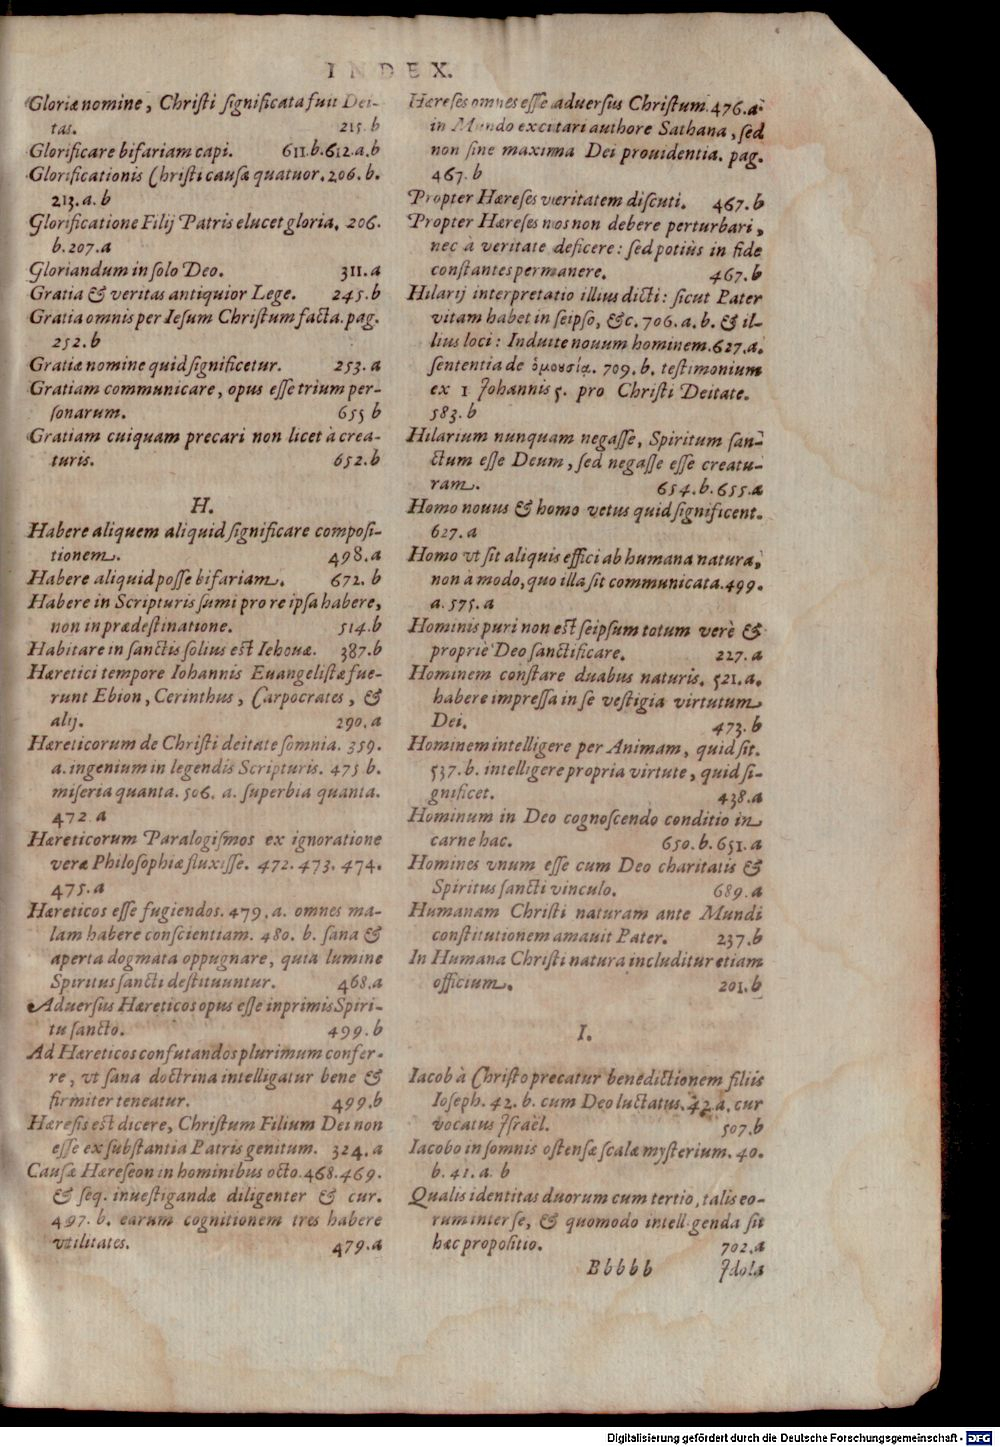 INDEX.
Gloriæ nomine, Christi significata fuit Dei-
tas. 215. b
Glorificare bifariam capi. 611. b. 612. a. b
Glorificationis Christi causæ quatuor. 206. b.
213. a. b
Glorificatione Filij Patris elucet gloria. 206.
b. 207. a
Gloriandum in solo Deo. 311. a
Gratia & veritas antiquior Lege. 245. b
Gratia omnis per Iesum Christum facta. pag.
252. b
Gratiæ nomine quid significetur. 253. a
Gratiam communicare, opus esse trium per-
sonarum. 655 b
Gratiam cuiquam precari non licet à crea-
turis. 652. b
H.
Habere aliquem aliquid significare composi-
tionem. 498. a
Habere aliquid posse bifariam. 672. b
Habere in Scripturis sumi pro re ipsa habere,
non in prædestinatione. 514. b
Habitare in sanctis solius est Iehouæ. 387. b
Hæretici tempore Iohannis Euangelistæ fue-
runt Ebion, Cerinthus, Carpocrates, &
alij. 290. a
Hæreticorum de Christi deitate somnia. 359.
a. ingenium in legendis Scripturis. 475 b.
miseria quanta. 506. a. superbia quanta.
472 a
Hæreticorum Paralogismos ex ignoratione
veræ Philosophiæ fluxisse. 472. 473. 474.
475. a
Hæreticos esse fugiendos. 479. a. omnes ma-
lam habere conscientiam. 480. b. sana &
aperta dogmata oppugnare, quia lumine
Spiritus sancti destituuntur. 468. a
Aduersus Hæreticos opus esse inprimis Spiri-
tu sancto. 499. b
Ad Hæreticos confutandos plurimum confer-
re, vt sana doctrina intelligatur bene &
firmiter teneatur. 499. b
Hæresis est dicere, Christum Filium Dei non
esse ex substantia Patris genitum. 324. a
Causæ Hæreseon in hominibus octo. 468. 469.
& seq. inuestigandæ diligenter & cur.
497. b. earum cognitionem tres habere
vtilitates. 479. a
Hæreses omnes esse aduersus Christum. 476. a.
in Mundo excitari authore Sathana, sed
non sine maxima Dei prouidentia. pag.
467. b
Propter Hæreses veritatem discuti. 467. b
Propter Hæreses nos non debere perturbari,
nec à veritate deficere: sed potiùs in fide
constantes permanere. 467. b
Hilarij interpretatio illius dicti: sicut Pater
vitam habet in seipso, &c. 706. a. b. & il-
lius loci: Induite nouum hominem. 627. a.
sententia de ὁμουσία. 709. b. testimonium
ex 1 Johannis 5. pro Christi Deitate.
583. b
Hilarium nunquam negasse, Spiritum san-
ctum esse Deum, sed negasse esse creatu-
ram. 654. b. 655. a
Homo nouus & homo vetus quid significent.
627. a
Homo vt sit aliquis effici ab humana natura,
non à modo, quo illa sit communicata. 499.
a. 575. a
Hominis puri non est seipsum totum verè &
propriè Deo sanctificare. 227. a
Hominem constare duabus naturis. 521. a.
habere impressa in se vestigia virtutum
Dei. 473. b
Hominem intelligere per Animam, quid sit.
537. b. intelligere propria virtute, quid si-
gnificet. 438. a
Hominum in Deo cognoscendo conditio in
carne hac. 650. b. 651. a
Homines vnum esse cum Deo charitatis &
Spiritus sancti vinculo. 689. a
Humanam Christi naturam ante Mundi
constitutionem amauit Pater. 237. b
In Humana Christi natura includitur etiam
officium. 201. b
I.
Iacob à Christo precatur benedictionem filiis
Ioseph. 42. b. cum Deo luctatus. 42. a. cur
vocatus Jsraël. 507. b
Iacobo in somnis ostensæ scalæ mysterium. 40.
b. 41. a. b
Qualis identitas duorum cum tertio, talis eo-
rum inter se, & quomodo intelligenda sit
hæc propositio. 702. a
Bbbbb Jdola
Digitalisierung gefördert durch die Deutsche Forschungsgemeinschaft - DFG